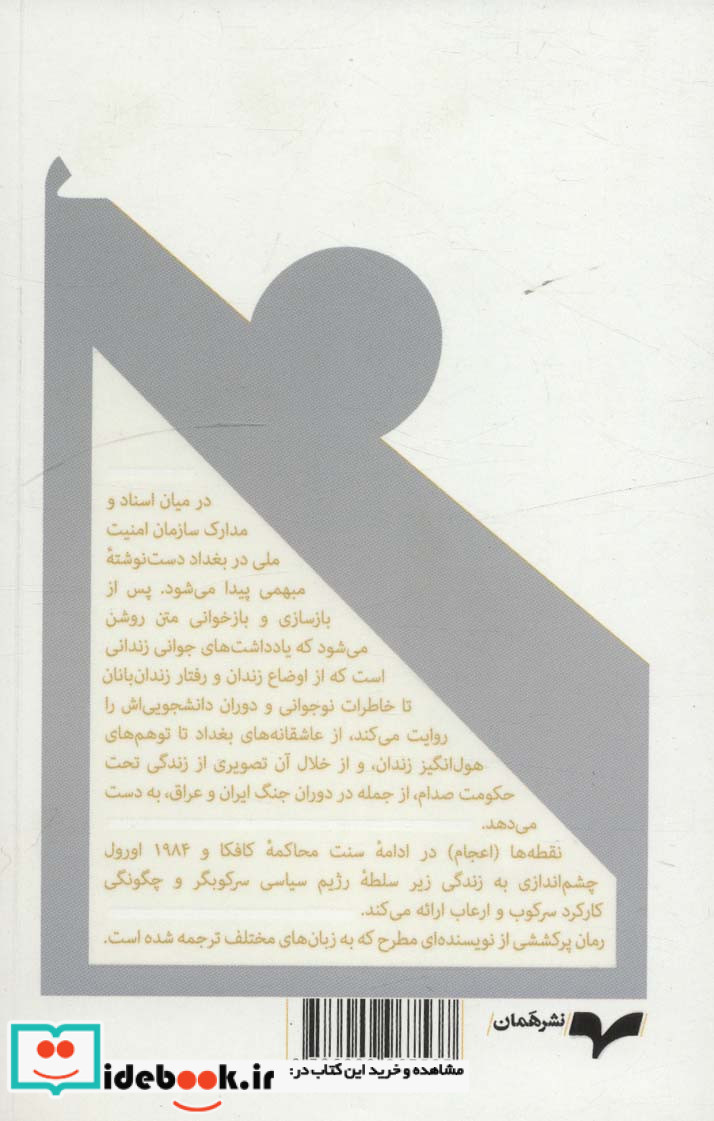 در میان اسناد و
مدارک سازمان امنیت
ملی در بغداد دست‌نوشتهٔ
مبهمی پیدا می‌شود. پس از
بازسازی و بازخوانی متن روشن
می‌شود که یادداشت‌های جوانی زندانی
است که از اوضاع زندان و رفتار زندان‌بانان
تا خاطرات نوجوانی و دوران دانشجویی‌اش را
روایت می‌کند، از عاشقانه‌های بغداد تا توهم‌های
هول‌انگیز زندان، و از خلال آن تصویری از زندگی تحت
حکومت صدام، از جمله در دوران جنگ ایران و عراق، به دست
می‌دهد.
نقطه‌ها (اعجام) در ادامهٔ سنت محاکمهٔ کافکا و ۱۹۸۴ اورول
چشم‌اندازی به زندگی زیر سلطهٔ رژیم سیاسی سرکوبگر و چگونگی
کارکرد سرکوب و ارعاب ارائه می‌کند.
رمان پرکششی از نویسنده‌ای مطرح که به زبان‌های مختلف ترجمه شده است.
نشر هَمان
مشاهده و خرید این کتاب در:
idebook.ir